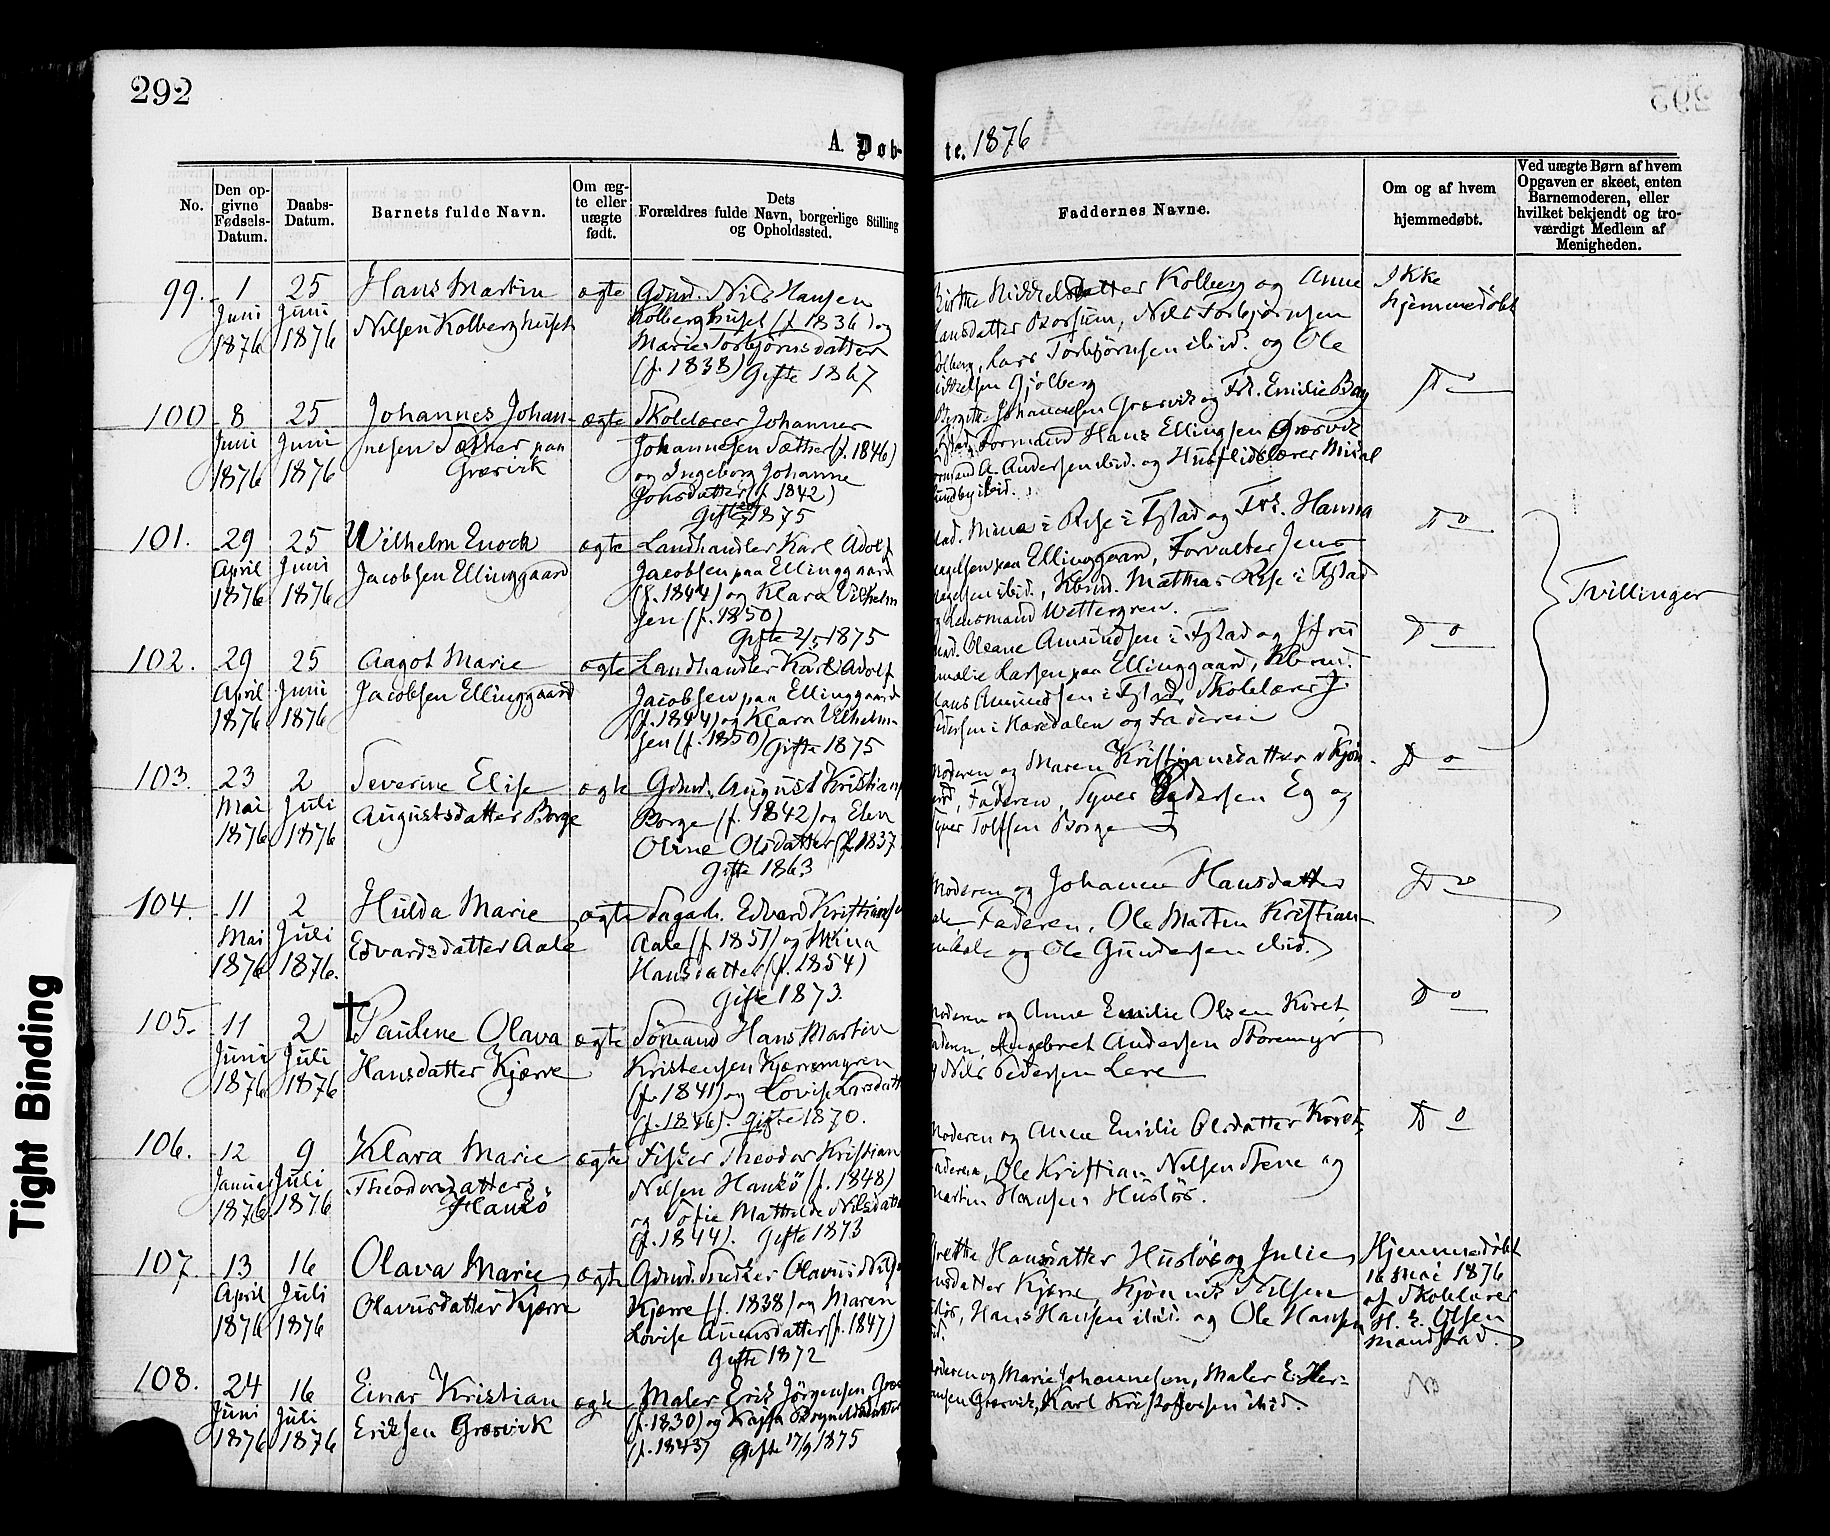 292
A. Døb-
te. 1876
No.
Den op-
givne
Fødsels-
Datum.
Daabs-
Datum.
Barnets fulde Navn.
Om æg-
te eller
uægte
født.
Dets
Forældres fulde Navn, borgerlige Stilling
og Opholdssted.
Faddernes Navne.
Om og af hvem
hjemmedøbt.
Ved uægte Børn af hvem
Opgaven er skeet, enten
Barnemoderen, eller
hvilket bekjendt og tro-
værdigt Medlem af
Menigheden.
99.
1
Juni
1876
25
Juni
1876
Hans Martin
Nilsen Kolberghuset
ægte
Gdmd. Nils Hansen
Kolberghuset (f. 1836) og
Marie Torbjørnsdatter
(f. 1838) Gifte 1867
Birthe Nickelsdatter Kolberg og Anne
Hansdatter Borsum, Nils Torbjørnsen
Kolberg, Lars Torbjørnsen ibid. og Ole
Gjølberg
Ikke
hjemmedøbt
100
8
Juni
1876
25
Juni
1876
Johannes Johan-
nesen Sæther paa
Græsvik
ægte
Skolelærer Johannes
Johannesen Sæther (f. 1846)
og Ingeborg Johanne
Jonsdatter (f. 1842)
Gifte 1875
Johannesen Græsvik og Fr. Emilie
Formand Hans Ellingsen Græsvik
A. Andersen ibid. og Husflidslærer
ibid.
Do
101.
29
April
1876
25
Juni
1876
Wilhelm Enoch
Jacobsen Ellinggaard
ægte
Landhandler Karl Adolf
Jacobsen paa Ellinggaard
(f. 1844) og Klara Vilhelm
sen (f. 1850)
Gifte 2/5 1875
Mad. Mina i Rese i Fstad og Frk. Hanna
paa Ellinggaard, Forvalter Jens
ibid., Kbmd. Mathias Rese i Fstad
og Lensmand Wettergren.
Do
Tvillinger
102.
29
April
1876
25
Juni
1876
Aagot Marie
Jacobsen Ellinggaard
ægte
Landhandler Karl Adolf
Jacobsen paa Ellinggaard
(f. 1844) og Klara Vilhelm-
sen (f. 1850) Gifte 1875
Mad. Oleane Amundsen i Fstad og Jfru
Amalie Larsen paa Ellinggaard, Kbmd.
Hans Amundsen i Fstad, Skolelærer J.
Pedersen i Haredalen og Faderen
Do
103.
23
Mai
1876
2
Juli
1876
Severine Elise
Augustsdatter Borge
ægte
Gdmd. August Kristians
Borge (f. 1842) og Elen
Oline Olsdatter (f. 1837
Gifte 1863
Moderen og Maren Kristiansdatter
Faderen, Syver Pedersen Eg og
Syver Tolfsen Borge
Do
104.
11
Mai
1876
2
Juli
1876.
Hulda Marie
Edvardsdatter Aale
ægte
Sagarb. Edvard Kristianse
Aale (f. 1851) og Mina
Hansdatter (f. 1854)
Gifte 1873.
Moderen og Johanne Hansdatter
Aale, Faderen, Ole Martin Kristian-
sen Aale og Ole Gundersen ibid.
Do
105.
11
Juni
1876
2
Juli
1876
Pauline Olava
Hansdatter Kjærre
ægte
Sømand Hans Martin
Kristensen Kjærremyren
(f. 1841) og Lovise Larsdatt
(f. 1846). Gifte 1870.
Moderen og Anne Emilie Olsen Køret,
Faderen, Angebret Andersen Storemyr
og Nils Pedersen Lere
Do
106.
12
Januar
1876
9
Juli
1876
Klara Marie
Theodorsdatter
Hankø
ægte
Fisker Theodor Kristian
Nilsen Hankø (f. 1848)
og Sofie Mathilde Nilsdatte
(f. 1844). Gifte 1873
Moderen og Anne Emilie Olsdatter Køret,
Faderen, Ole Kristian Nilsen Stene og
Martin Hansen Husløs.
Do
107.
13
April
1876
16
Juli
1876
Olava Marie
Olavusdatter Kjærre
ægte
Gdmd. Snedker Olavus Nilse
Kjærre (f. 1838) og Maren
Lovise Auensdatter (f. 1847)
Gifte 1872
Grethe Hansdatter Husløs og Julie
Kjærre, Kjønnik Nilsen
Husløs, Hans Hansen ibid. og Ole Hansen
ibid.
Hjemmedøbt
16 Mai 1876
af Skolelærer
H. E. Olsen
Mandstad.
108.
24
Juni
1876
16
Juli
1876
Einar Kristian
Eriksen Græsvik
ægte
Maler Erik Jørgensen Græs
(f. 1830) og Kajsa Brynildsdatter
(f. 1843) Gifte 17/9 1875
Moderen og Marie Johannesen, Maler E. Her-
mansen Græsvik, Karl Kristoffersen ibid.
No
Tight Binding